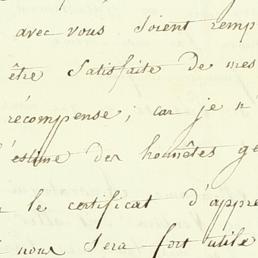 avec vous soient remp
être satisfaite de mes
récompense; car je n'
l'estime des honnêtes ge
le certificat d'appre
nous sera fort utile